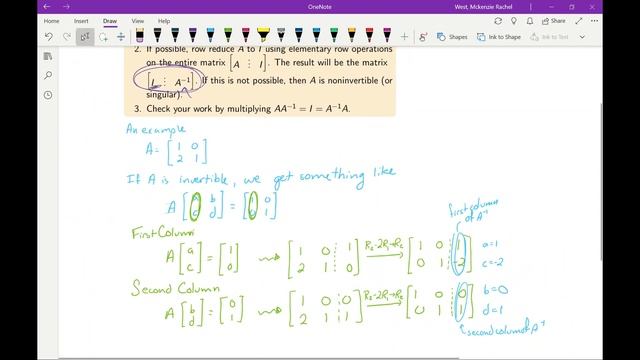 OneNote
West, Mckenzie Rachel
File Home Insert Draw View Help
Ink to Shape Ink to Text
2. If possible, row reduce A to I using elementary row operations
on the entire matrix [A ⋮ I]. The result will be the matrix
[I ⋮ A⁻¹]. If this is not possible, then A is noninvertible (or
singular).
3. Check your work by multiplying AA⁻¹ = I = A⁻¹A.
An example
A = [1 0
2 1]
If A is invertible, we get something like
A [a b
c d] = [1 0
0 1]
first column
of A⁻¹
First Column
A [a
c] = [1
0] ⇝ [1 0 ⋮ 1
2 1 ⋮ 0] R₂-2R₁→R₂ [1 0 ⋮ 1
0 1 ⋮ -2] a=1
c=-2
Second Column
A [b
d] = [0
1] ⇝ [1 0 ⋮ 0
2 1 ⋮ 1] R₂-2R₁→R₂ [1 0 ⋮ 0
0 1 ⋮ 1] b=0
d=1
second column of A⁻¹